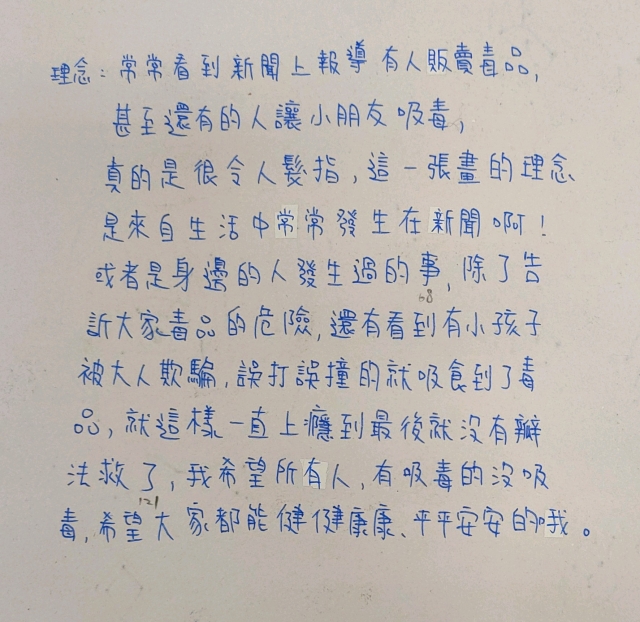 理念：常常看到新聞上報導有人販賣毒品，
甚至還有的人讓小朋友吸毒，
真的是很令人髮指，這一張畫的理念
是來自生活中常常發生在新聞啊！
或者是身邊的人發生過的事，除了告
68
訴大家毒品的危險，還有看到有小孩子
被大人欺騙，誤打誤撞的就吸食到了毒
品，就這樣一直上癮到最後就沒有辦
法救了，我希望所有人，有吸毒的沒吸
121
毒，希望大家都能健健康康、平平安安的哦。